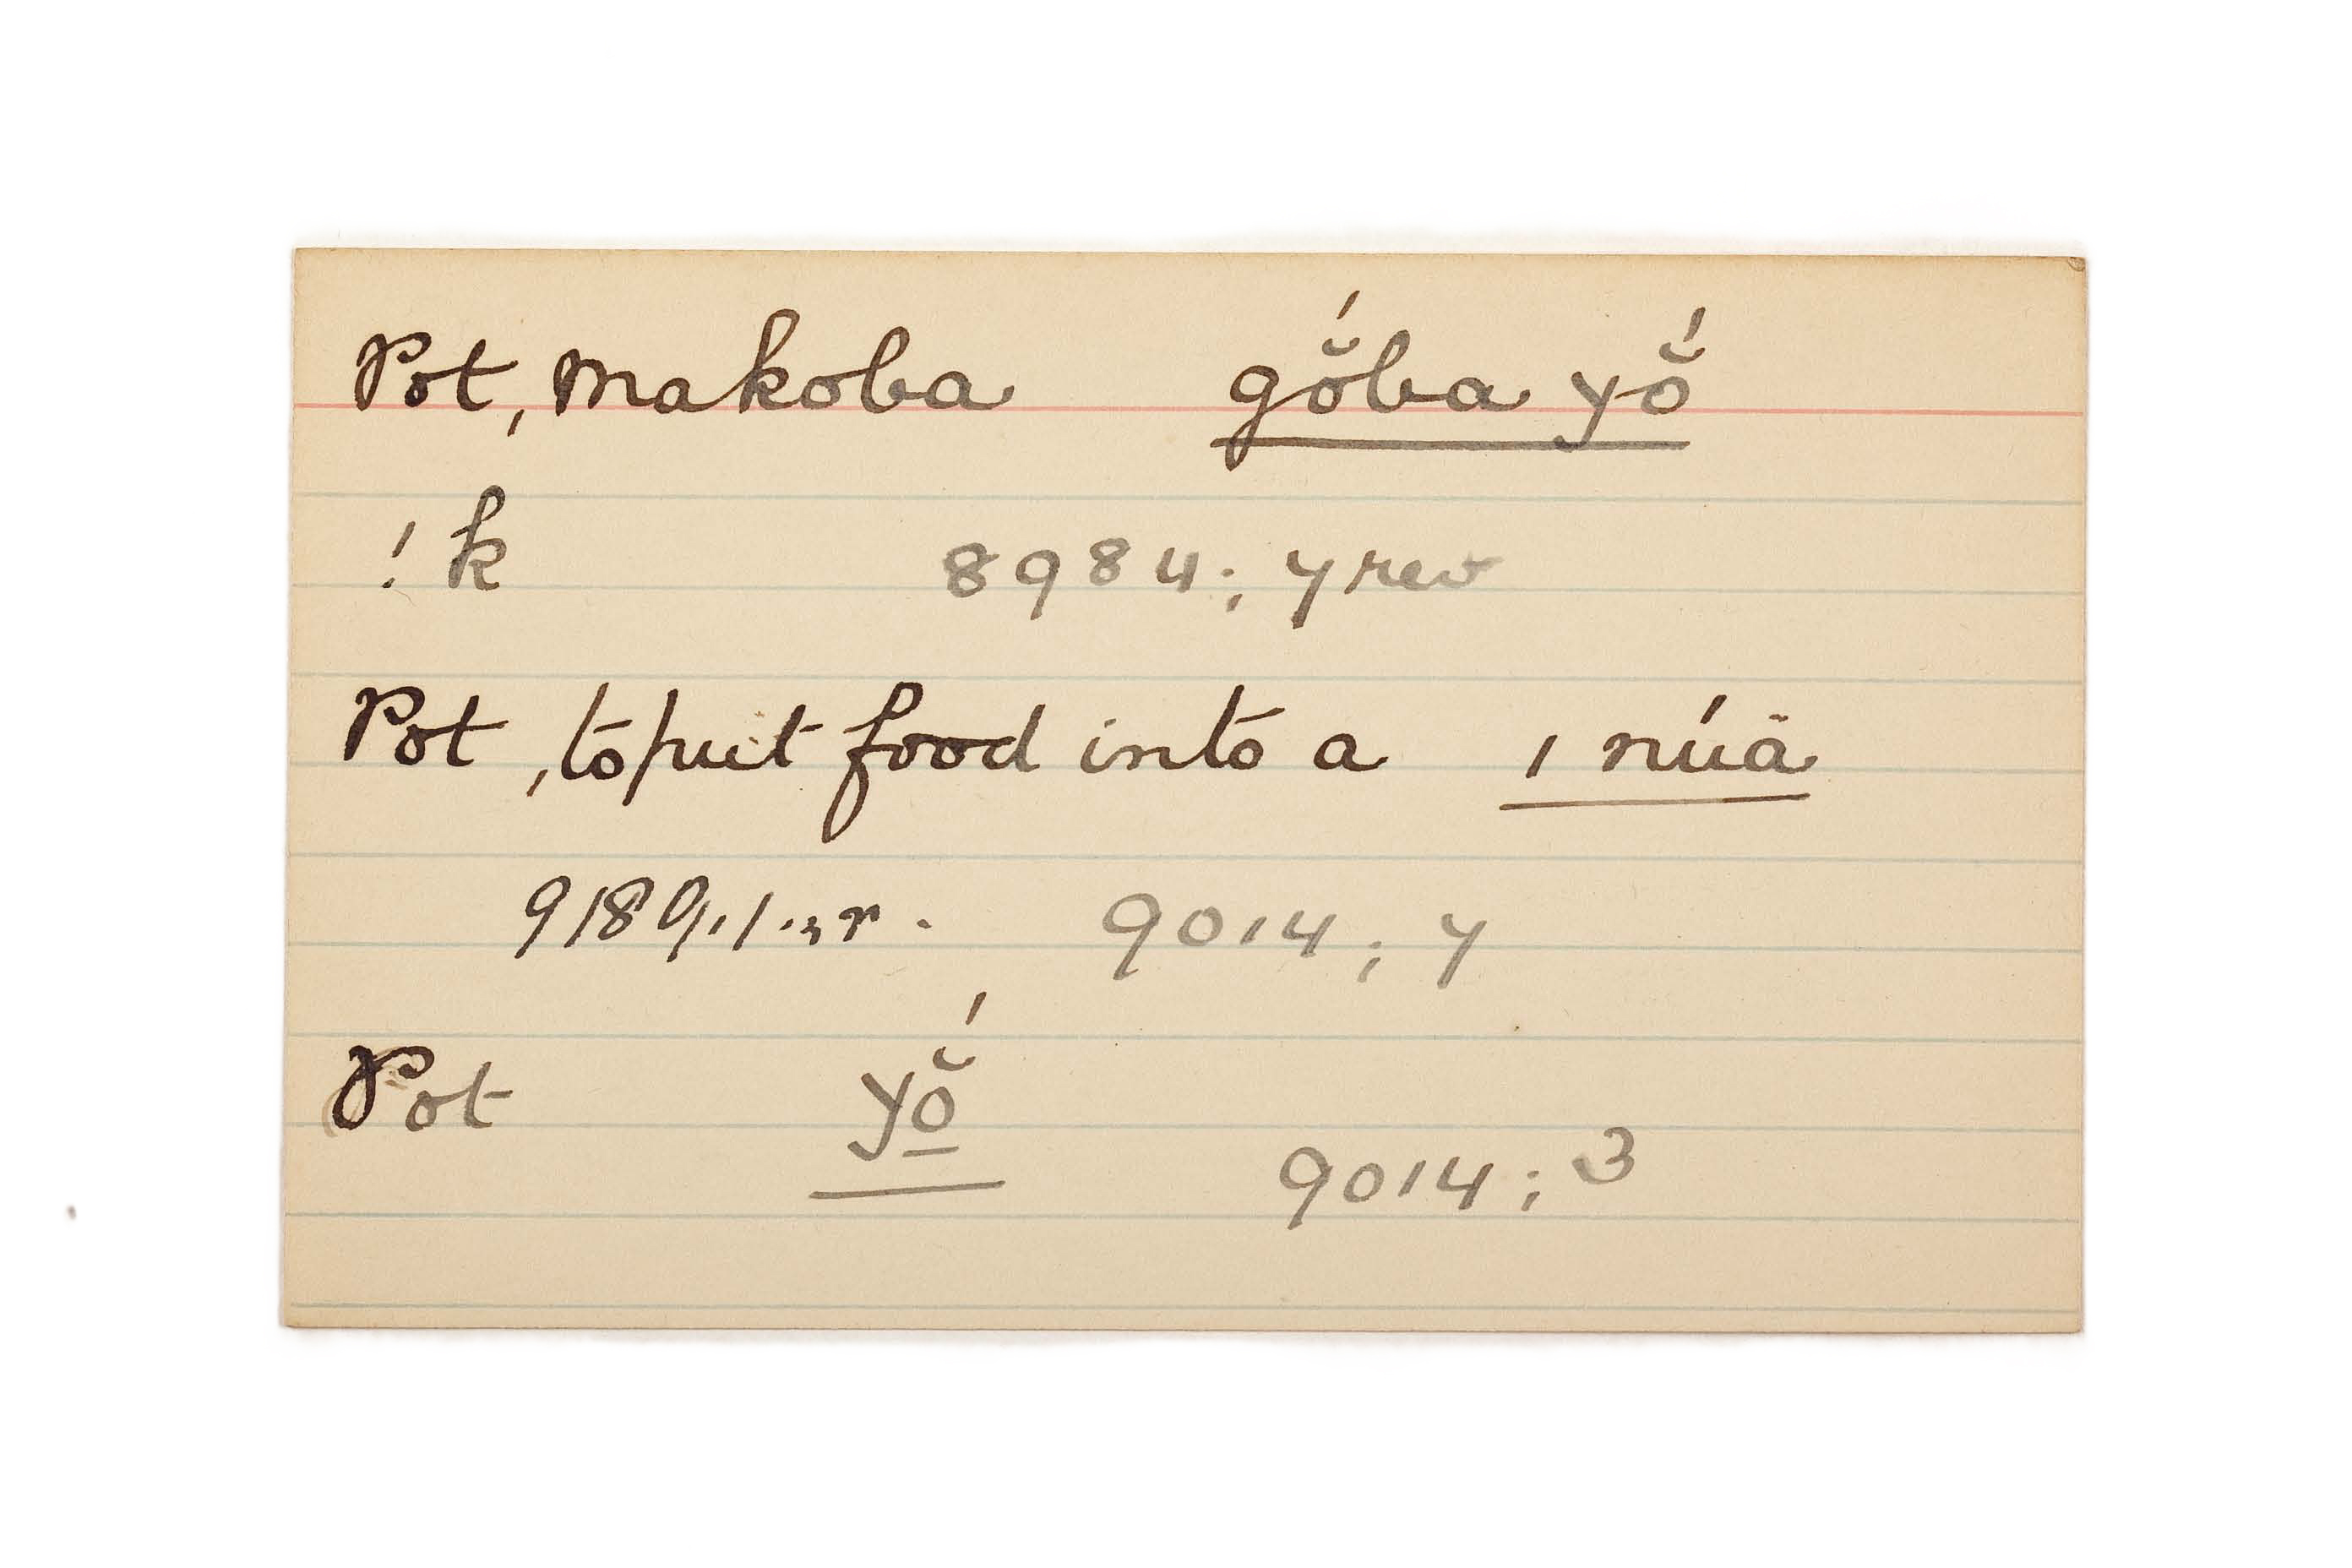 Pot, Makoba gŏ́ba yŏ́
! k 8984; y rev
Pot, to put food into a ı núä
9014; y
Pot yŏ̱́
9014; 3